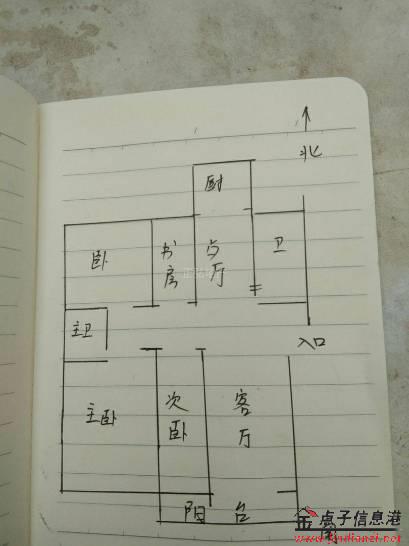 北
厨
卧
书房
厅
卫
主卫
入口
主卧
次卧
客厅
阳台
金点子信息港